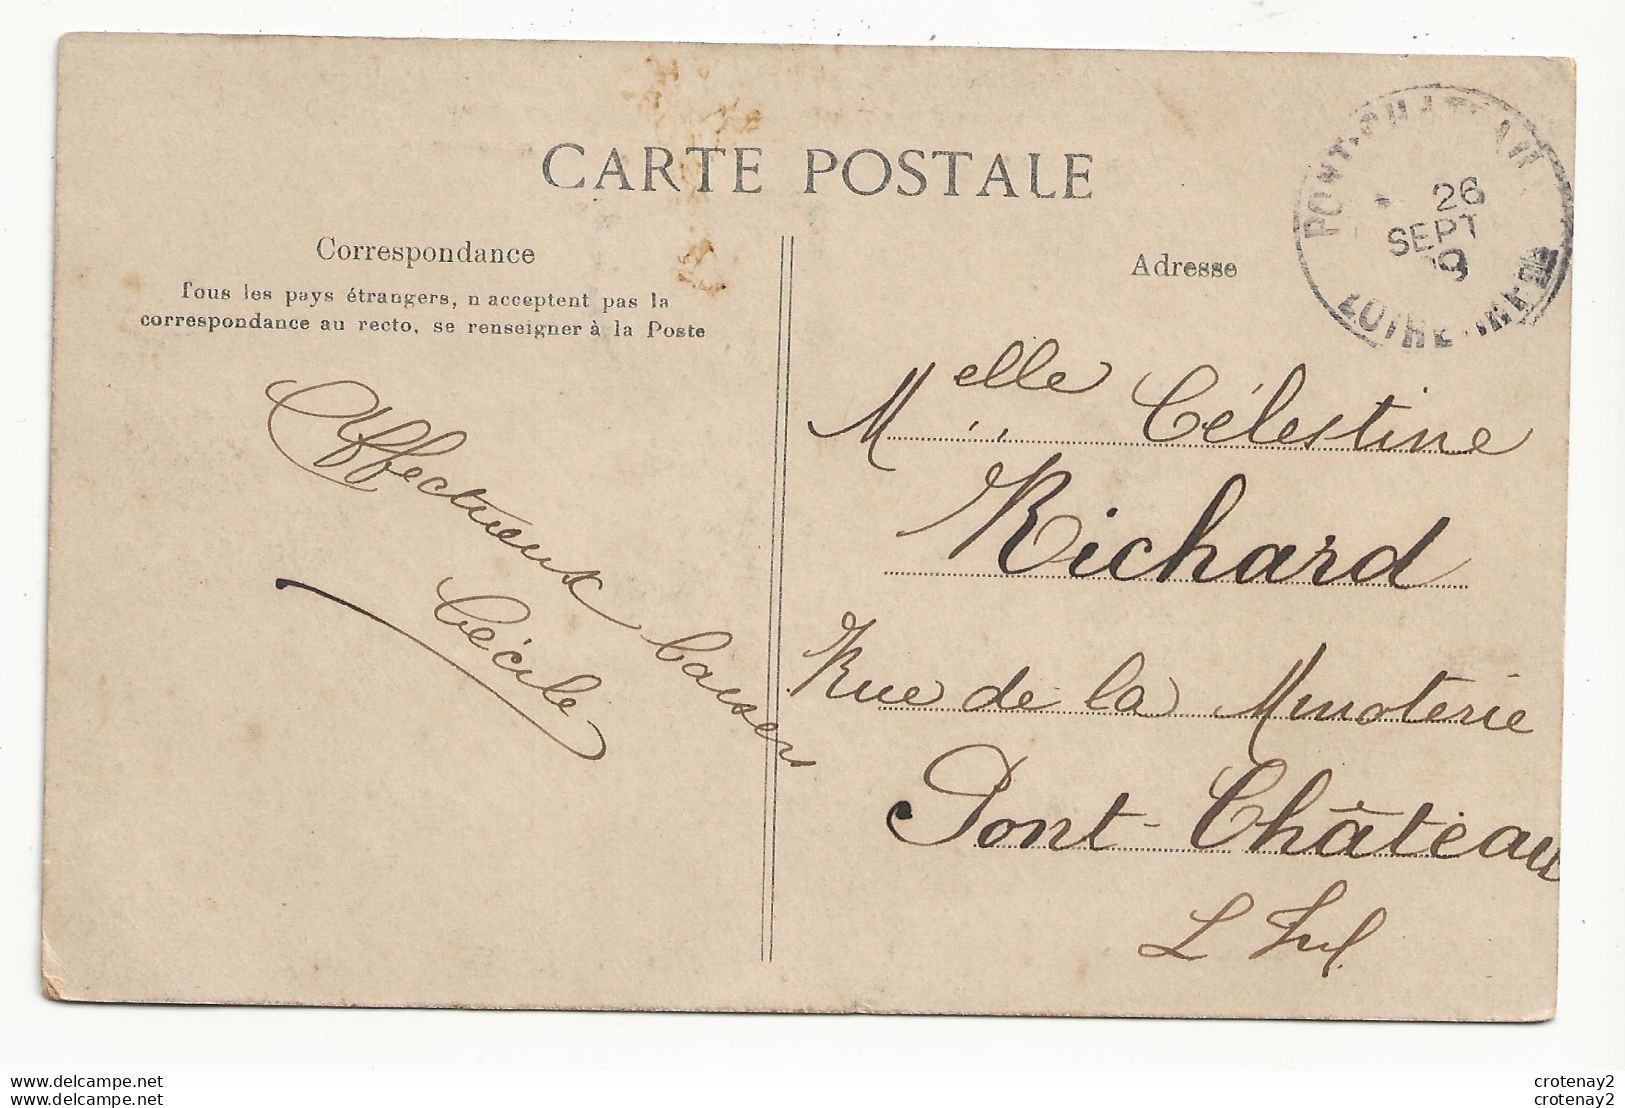 CARTE POSTALE
Correspondance
Tous les pays étrangers, n acceptent pas la
correspondance au recto, se renseigner à la Poste
Affectueux baisers
Cécile
Adresse
PONT-CHATEAU
26
SEPT
LOIRE-INFRE
Melle Célestine
Richard
Rue de la Minoterie
Pont-Château
L Inf
crotenay2
crotenay2
crotenay2
crotenay2